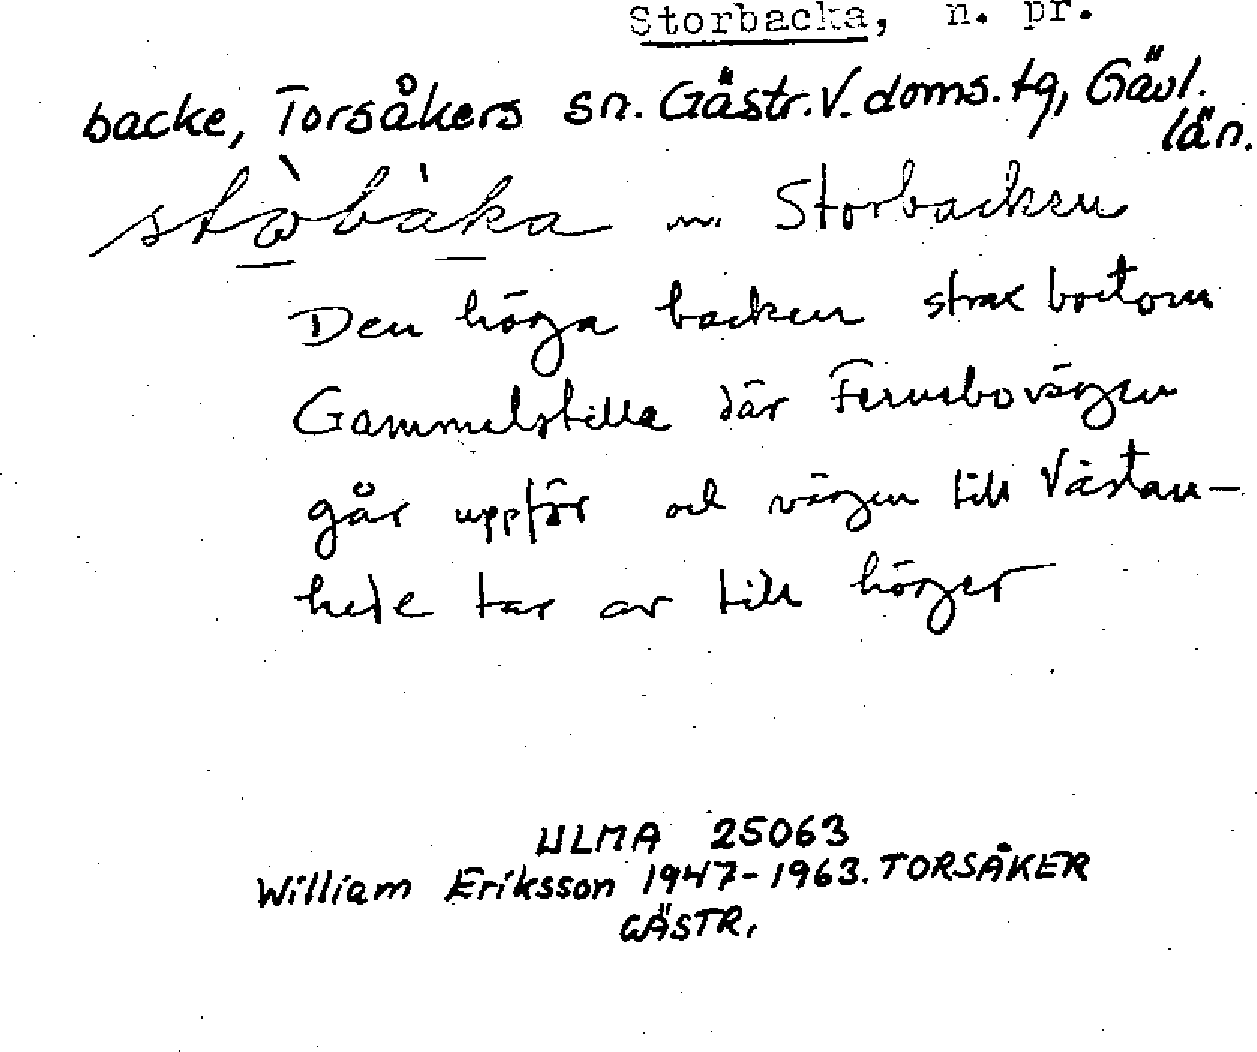 Storbacka, n. pr.
backe, Torsåkers sn. Gästr. V. doms. tg, Gävl.
län.
stɷ̀bàka m. Storbacken
Den höga backen strax bortom
Gammelstilla där Fernebovägen
går uppför och vägen till Västan-
hede tar av till höger
ULMA 25063
William Eriksson 1947-1963. TORSÅKER
GÄSTR.